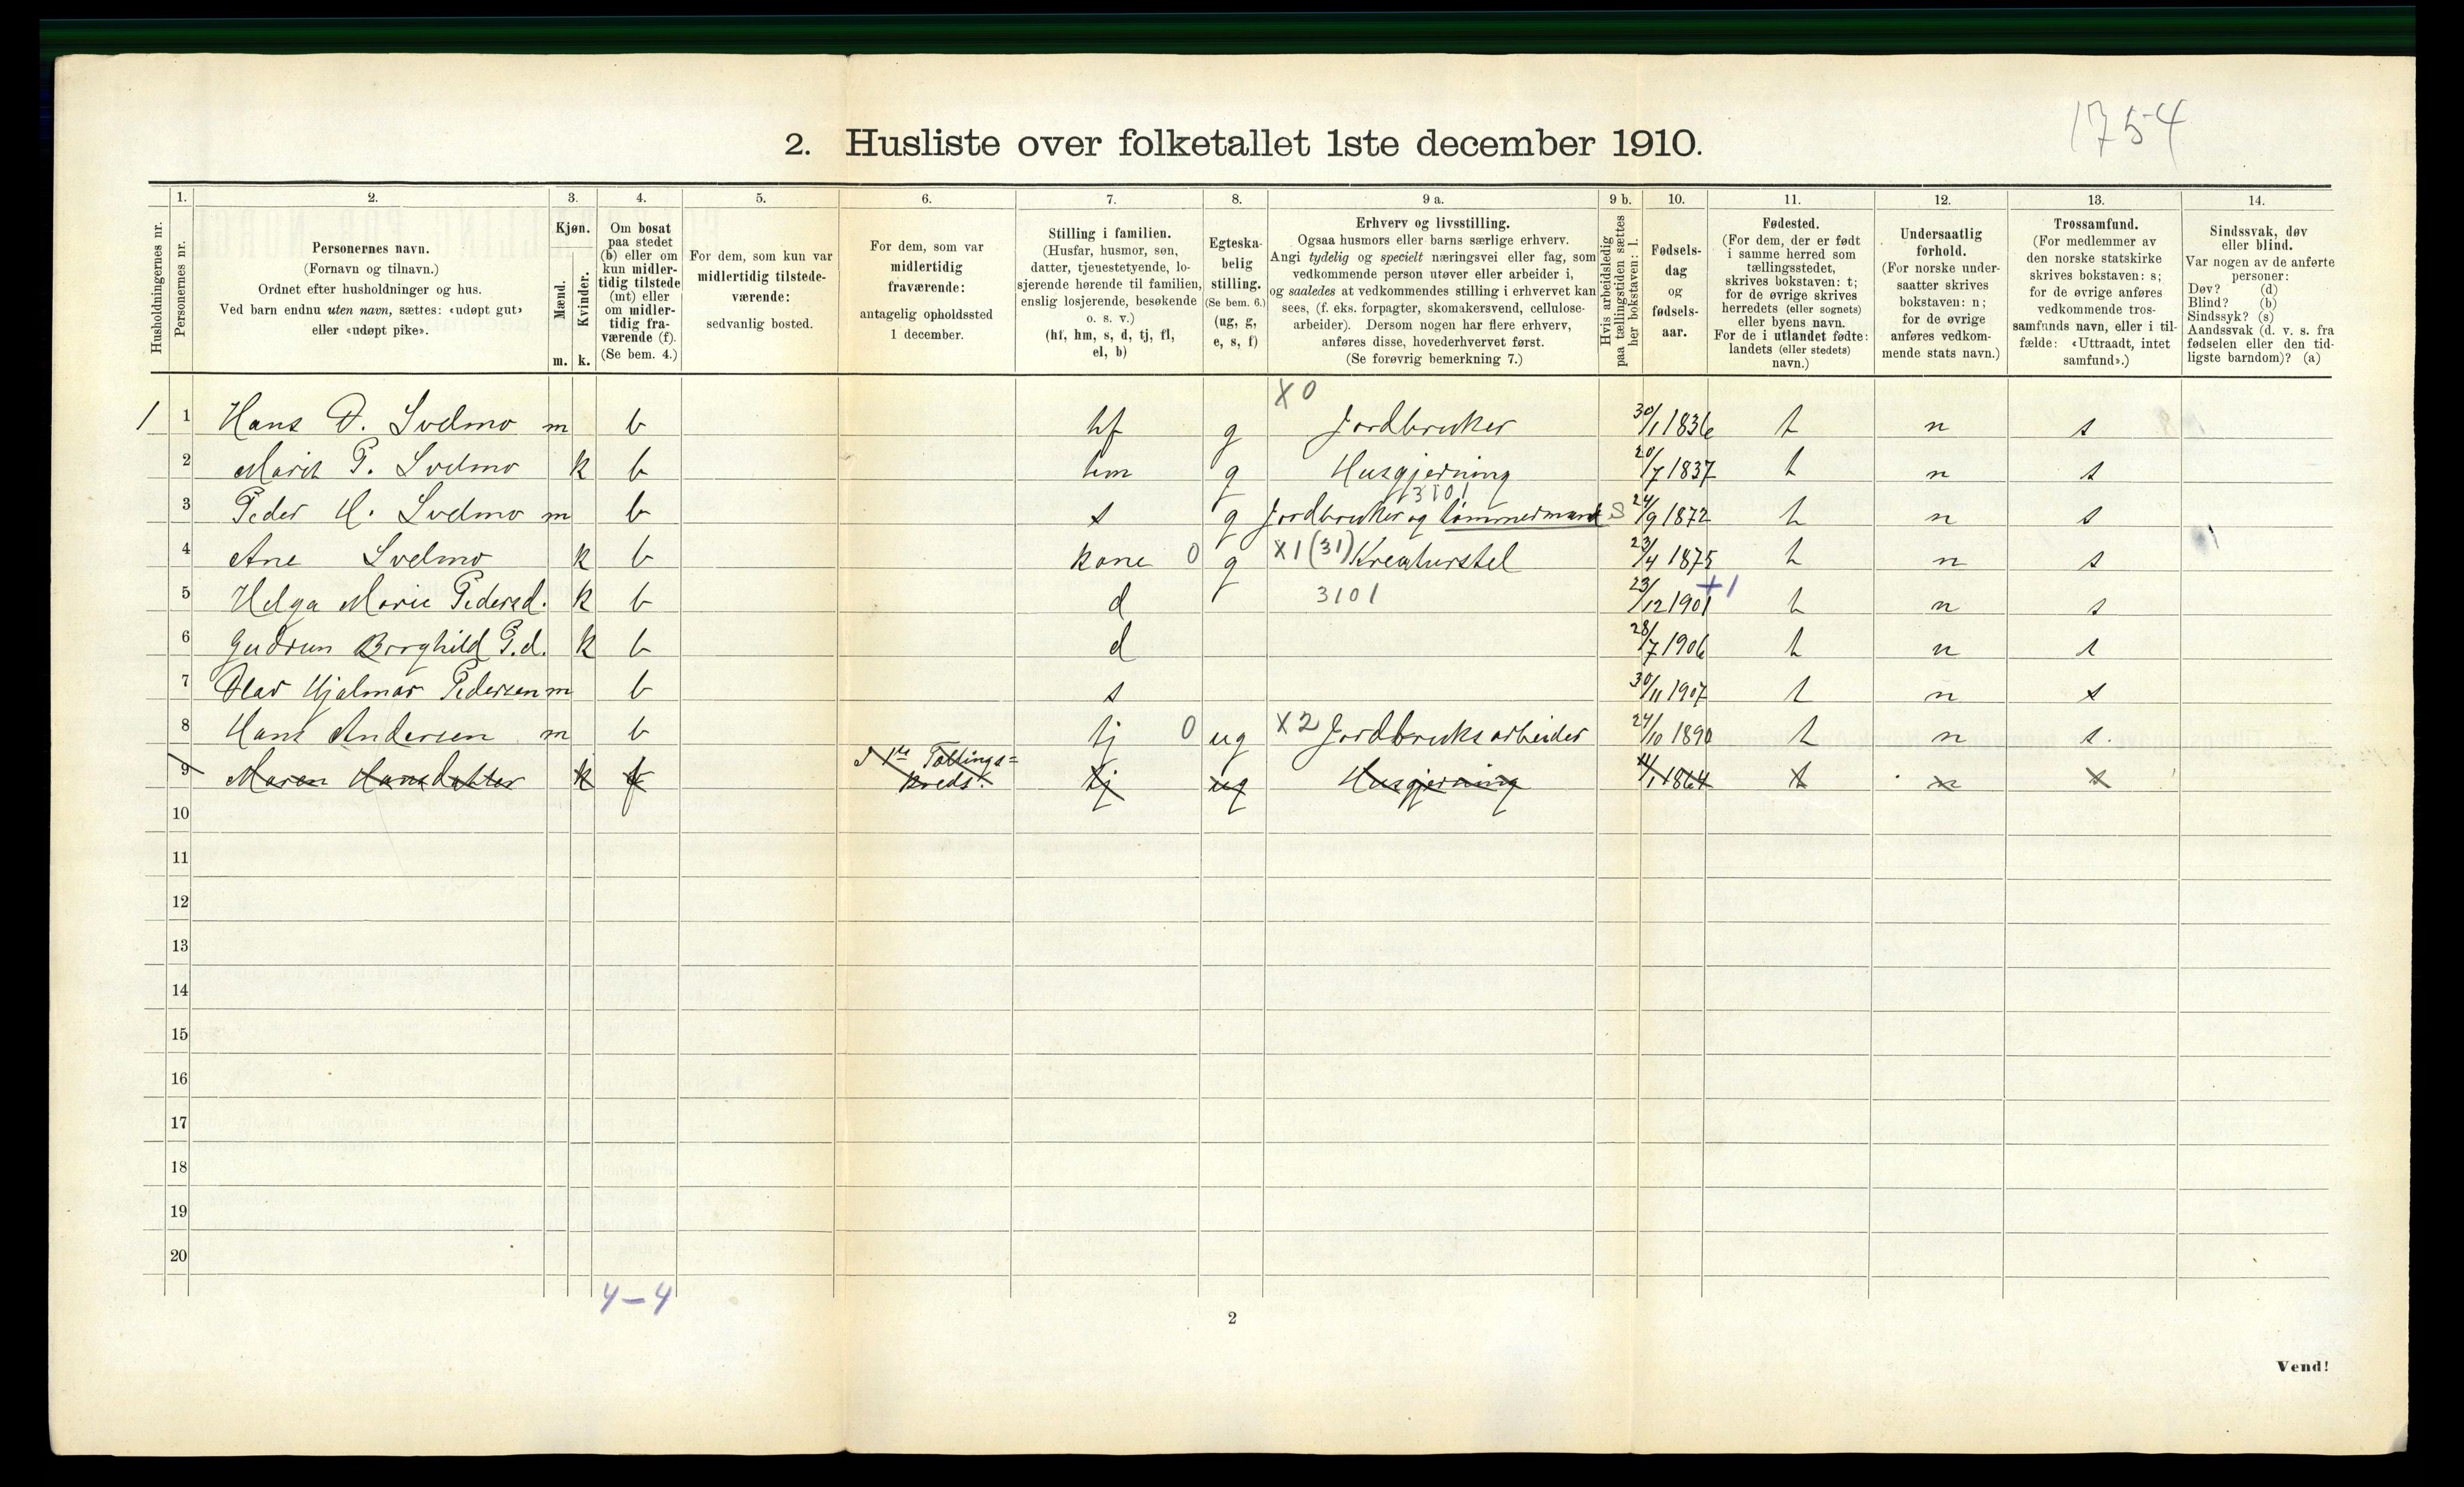 1754
2. Husliste over folketallet 1ste december 1910.
Husholdningernes nr.
1. Personernes nr.
2. Personernes navn.
(Fornavn og tilnavn.)
Ordnet efter husholdninger og hus.
Ved barn endnu uten navn, sættes: «udøpt gut»
eller «udøpt pike».
3. Kjøn.
Mænd. m.
Kvinder. k.
4. Om bosat
paa stedet
(b) eller om
kun midler-
tidig tilstede
(mt) eller
om midler-
tidig fra-
værende (f).
(Se bem. 4.)
5. For dem, som kun var
midlertidig tilstede-
værende:
sedvanlig bosted.
6. For dem, som var
midlertidig
fraværende:
antagelig opholdssted
1 december.
7. Stilling i familien.
(Husfar, husmor, søn,
datter, tjenestetyende, lo-
sjerende hørende til familien,
enslig losjerende, besøkende
o. s. v.)
(hf, hm, s, d, tj, fl,
el, b)
8. Egteska-
belig
stilling.
(Se bem. 6.)
(ug, g,
e, s, f)
9 a. Erhverv og livsstilling.
Ogsaa husmors eller barns særlige erhverv.
Angi tydelig og specielt næringsvei eller fag, som
vedkommende person utøver eller arbeider i,
og saaledes at vedkommendes stilling i erhvervet kan
sees, (f. eks. forpagter, skomakersvend, cellulose-
arbeider). Dersom nogen har flere erhverv,
anføres disse, hovederhvervet først.
(Se forøvrig bemerkning 7.)
9 b. Hvis arbeidsledig
paa tællingstiden sættes
her bokstaven: l.
10. Fødsels-
dag
og
fødsels-
aar.
11. Fødested.
(For dem, der er født
i samme herred som
tællingsstedet,
skrives bokstaven: t;
for de øvrige skrives
herredets (eller sognets)
eller byens navn.
For de i utlandet fødte:
landets (eller stedets)
navn.)
12. Undersaatlig
forhold.
(For norske under-
saatter skrives
bokstaven: n;
for de øvrige
anføres vedkom-
mende stats navn.)
13. Trossamfund.
(For medlemmer av
den norske statskirke
skrives bokstaven: s;
for de øvrige anføres
vedkommende tros-
samfunds navn, eller i til-
fælde: «Uttraadt, intet
samfund».)
14. Sindssvak, døv
eller blind.
Var nogen av de anførte
personer:
Døv? (d)
Blind? (b)
Sindssyk? (s)
Aandssvak (d. v. s. fra
fødselen eller den tid-
ligste barndom)? (a)
X 0
1 1 Hans O. Svelmo m b hf g Jordbruker 30/1 1836 t n s
2 Marit P. Svelmo k b hm g Husgjerning 20/7 1837 t n s
3101
3 Peder H. Svelmo m b s g Jordbruker og tømmermand S 24/9 1872 t n s
4 Ane Svelmo k b kone 0 g X1 (31) Kreaturstel 23/4 1875 t n s
5 Helga Marie Pedersd. k b d 3101 23/12 1901 +1 t n s
6 Gudrun Borghild P.d. k b d 28/7 1906 t n s
7 Olav Hjalmar Pedersen m b s 30/11 1907 t n s
8 Hans Andersen m b tj 0 ug X2 Jordbruksarbeider 24/10 1890 t n s.
9 Maren Hansdatter k f I 1ste Tællings=
kreds. tj ug Husgjerning 1864 t n s
10
11
12
13
14
15
16
17
18
19
20
4-4
2
Vend!